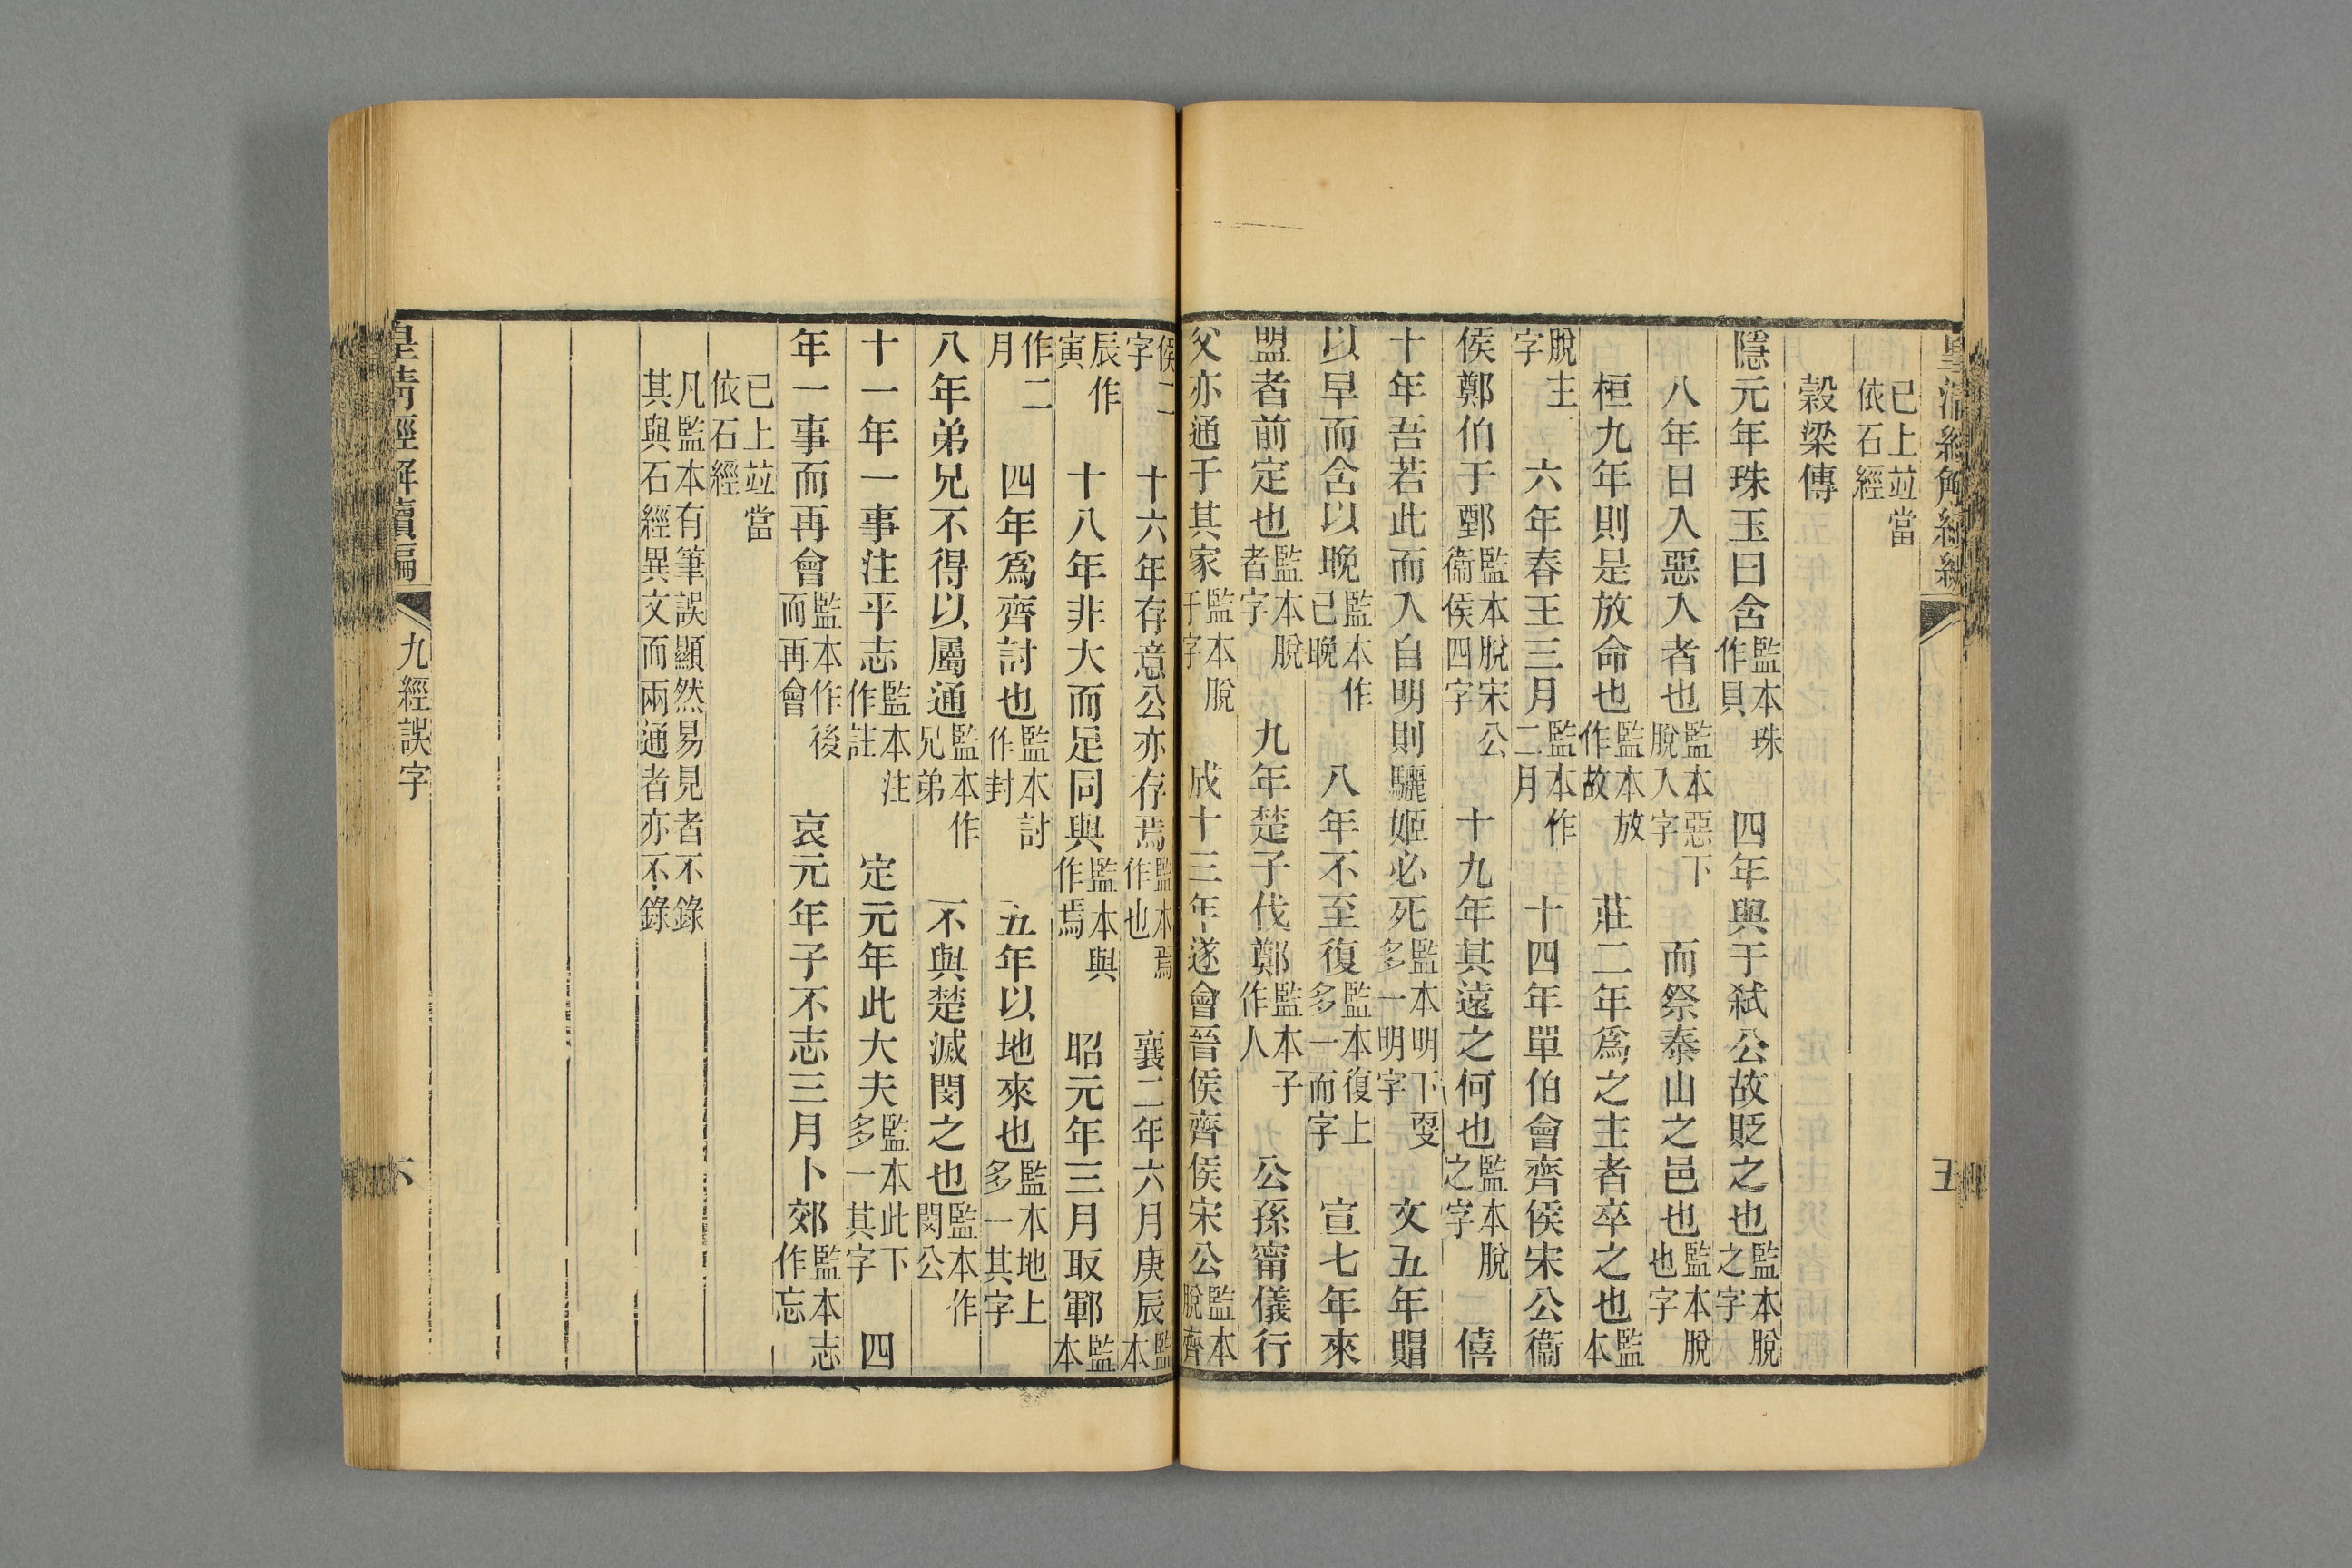 皇清經解續編
五
已上竝當
依石經
穀梁傳
隱元年珠玉曰含監本珠作貝 四年與于弒公故貶之也監本脫之字
八年日入惡入者也監本惡下脫入字 而祭泰山之邑也監本脫也字
桓九年則是放命也監本放作故 莊二年爲之主者卒之也監本
脫主字 六年春王三月監本作二月 十四年單伯會齊侯宋公衞
侯鄭伯于鄄監本脫宋公衞侯四字 十九年其遠之何也監本脫之字 僖
十年吾若此而入自明則驪姬必死監本明下更多一明字 文五年賵
以早而含以晚監本作已晚 八年不至復監本復上多一而字 宣七年來
盟者前定也監本脫者字 九年楚子伐鄭監本子作人 公孫甯儀行
父亦通于其家監本脫于字 成十三年遂會晉侯齊侯宋公監本脫齊
侯二字 十六年存意公亦存焉監本焉作也 襄二年六月庚辰監本
辰作寅 十八年非大而足同與監本與作焉 昭元年三月取鄆監本
作二月 四年爲齊討也監本討作封 五年以地來也監本地上多一其字
八年弟兄不得以屬通監本作兄弟 不與楚滅閔之也監本作閔公
十一年一事注乎志監本注作註 定元年此大夫監本此下多一其字 四
年一事而再會監本作後而再會 哀元年子不志三月卜郊監本志作忘
已上竝當
依石經
凡監本有筆誤顯然易見者不錄
其與石經異文而兩通者亦不錄
皇清經解續編
九經誤字
六